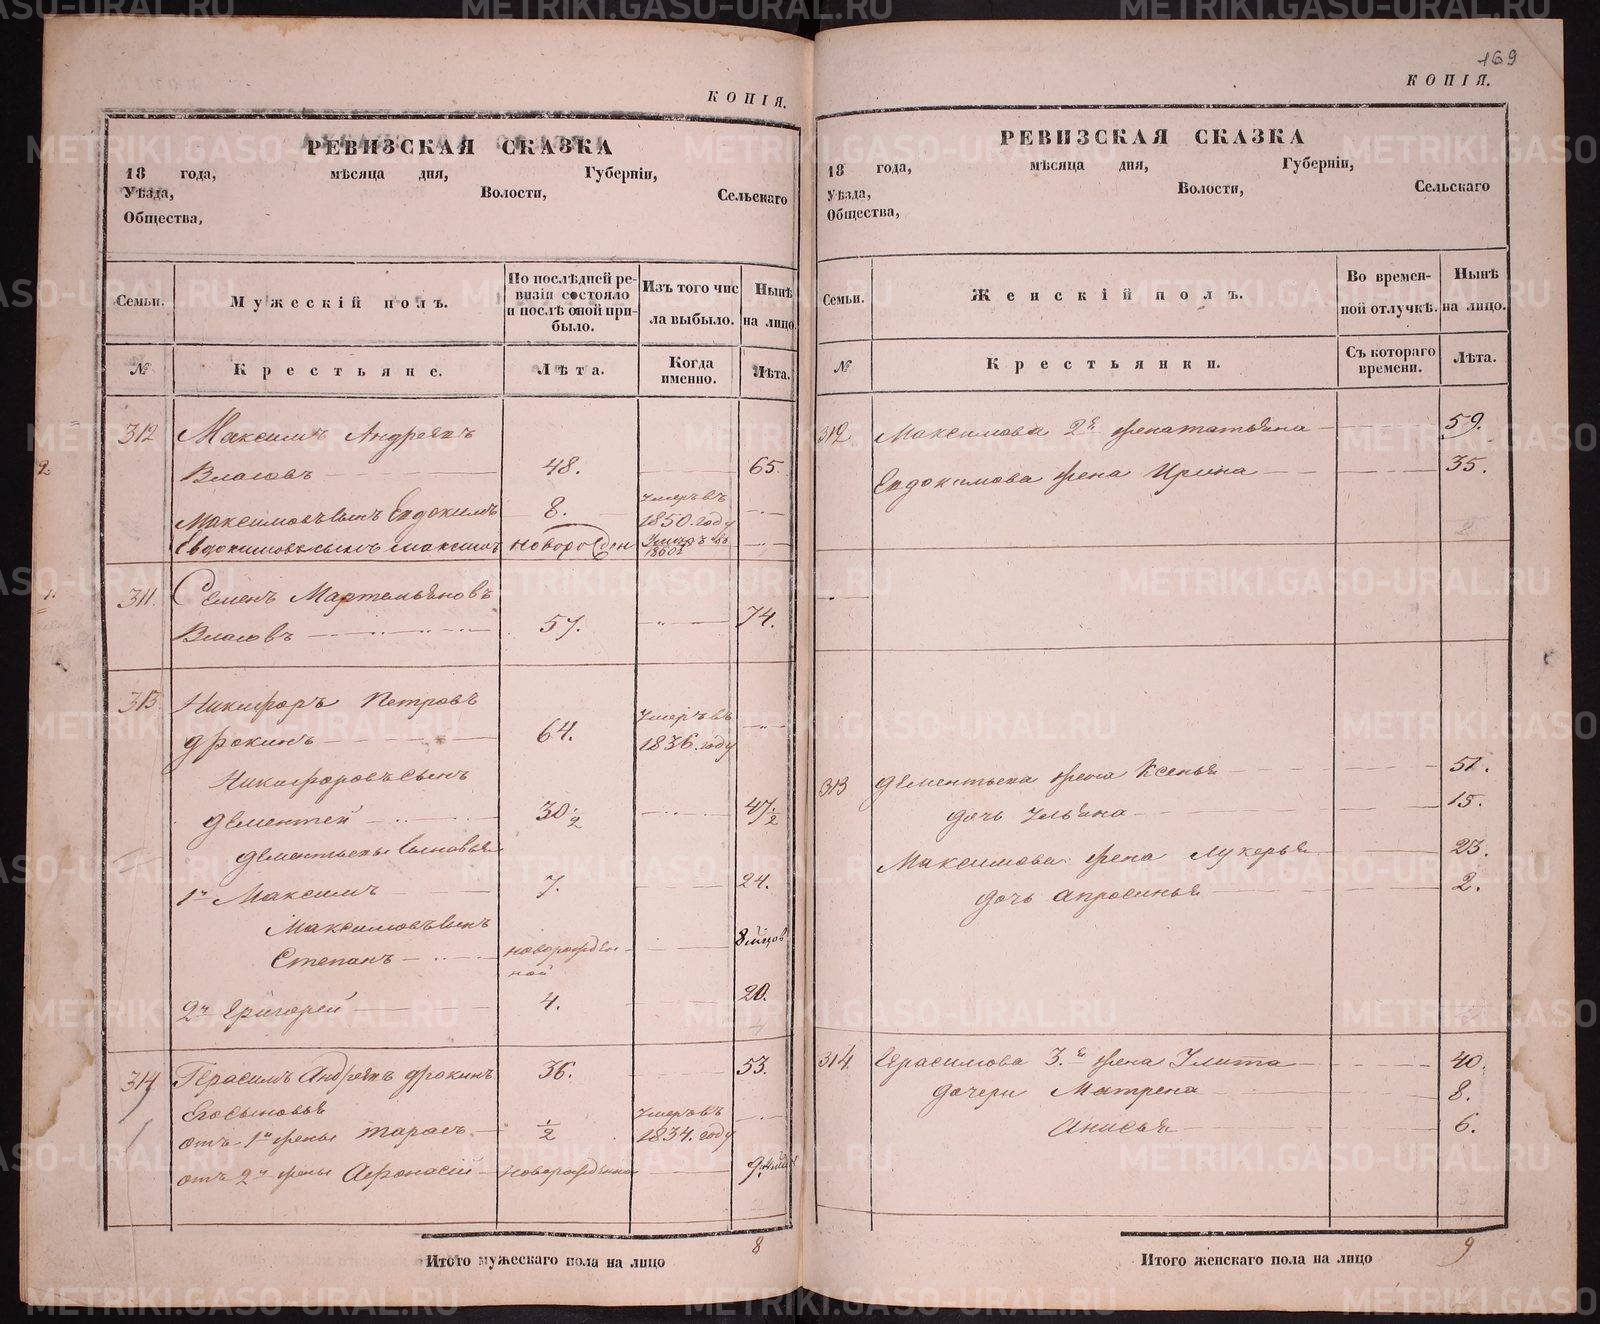 КОПІЯ.
РЕВИЗСКАЯ СКАЗКА
18 года, мѣсяца дня, Губерніи,
Уѣзда, Волости, Сельскаго
Общества,
Семьи. Мужескій полъ. По послѣдней ревизіи состояло и послѣ оной прибыло. Изъ того числа выбыло. Нынѣ на лицо.
№ Крестьяне. Лѣта. Когда именно. Лѣта.
312 Максимъ Андреевъ
Власовъ 48. 65.
Максимовъ сынъ Евдокимъ 8. Умеръ въ 1850. году
Евдокимовъ сынъ Максимъ новорожден Умеръ въ
311. Семенъ Мартемьяновъ
Власовъ 57. 74.
313 Никифоръ Петровъ
Фокинъ 64. Умеръ въ 1836. году
Никифоровъ сынъ
Дементей 30 1/2 47 1/2
Дементьевы сыновья
1й Максимъ 7. 24.
Максимовъ сынъ
Степанъ новорожденной 8
2й Григорей 4. 20.
314 Герасимъ Андреевъ Фокинъ 36. 53.
Его сыновья
отъ 1й жены Тарасъ 1/2 Умеръ въ 1834. году
отъ 2й жены Афонасій новорожденной 9
Итого мужескаго пола на лицо 8
169
КОПІЯ.
РЕВИЗСКАЯ СКАЗКА
18 года, мѣсяца дня, Губерніи,
Уѣзда, Волости, Сельскаго
Общества,
Семьи. Женскій полъ. Во временной отлучкѣ. Нынѣ на лицо.
№ Крестьянки. Съ котораго времени. Лѣта.
312. Максимова 2я жена Татьяна 59.
Евдокимова жена Ирина 35.
313 Дементьева жена Ксенья 51.
дочь Ульяна 15.
Максимова жена Лукерья 23.
дочь Апросинья 2.
314. Герасимова 3.я жена Улита 40.
дочери Матрена 8.
Анисья 6.
Итого женскаго пола на лицо 9
METRIKI.GASO-URAL.RU